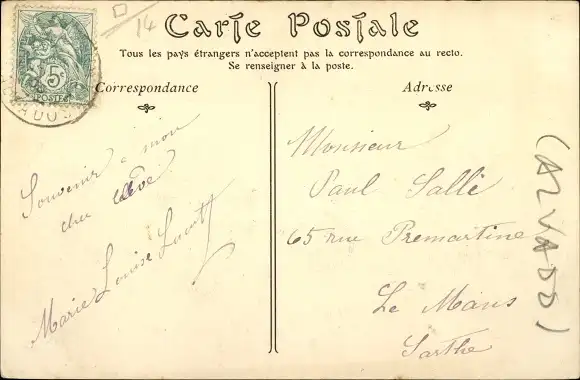 14
Carte Postale
Tous les pays étrangers n'acceptent pas la correspondance au recto.
Se renseigner à la poste.
Correspondance
Adresse
5c
POSTES
Souvenir à mon
cher élève
Marie Louise
Monsieur
Paul Sallé
65 rue Premartine
Le Mans
Sarthe
(CALVADOS)